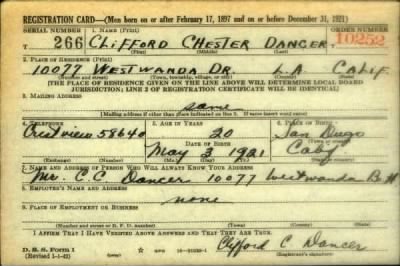 REGISTRATION CARD—(Men born on or after February 17, 1897 and on or before December 31, 1921)
SERIAL NUMBER 1. NAME (Print) ORDER NUMBER
T 266 CLIFFORD CHESTER DANCER 10252
(First) (Middle) (Last)
2. PLACE OF RESIDENCE (Print)
10077 WESTWANDA DR. L.A. CALIF.
(Number and street) (Town, township, village, or city) (County) (State)
[THE PLACE OF RESIDENCE GIVEN ON THE LINE ABOVE WILL DETERMINE LOCAL BOARD
JURISDICTION; LINE 2 OF REGISTRATION CERTIFICATE WILL BE IDENTICAL]
3. MAILING ADDRESS
same
[Mailing address if other than place indicated on line 2. If same insert word same]
4. TELEPHONE 5. AGE IN YEARS 6. PLACE OF BIRTH
Crestview 58640 20 San Diego
DATE OF BIRTH (Town or county)
May 2 1921 Calif
(Exchange) (Number) (Mo.) (Day) (Yr.) (State or country)
7. NAME AND ADDRESS OF PERSON WHO WILL ALWAYS KNOW YOUR ADDRESS
Mr. C. C. Dancer 10077 Westwanda B.H.
8. EMPLOYER'S NAME AND ADDRESS
none
9. PLACE OF EMPLOYMENT OR BUSINESS
(Number and street or R. F. D. number) (Town) (County) (State)
I AFFIRM THAT I HAVE VERIFIED ABOVE ANSWERS AND THAT THEY ARE TRUE.
D. S. S. Form 1
(Revised 1-1-42) Clifford C. Dancer